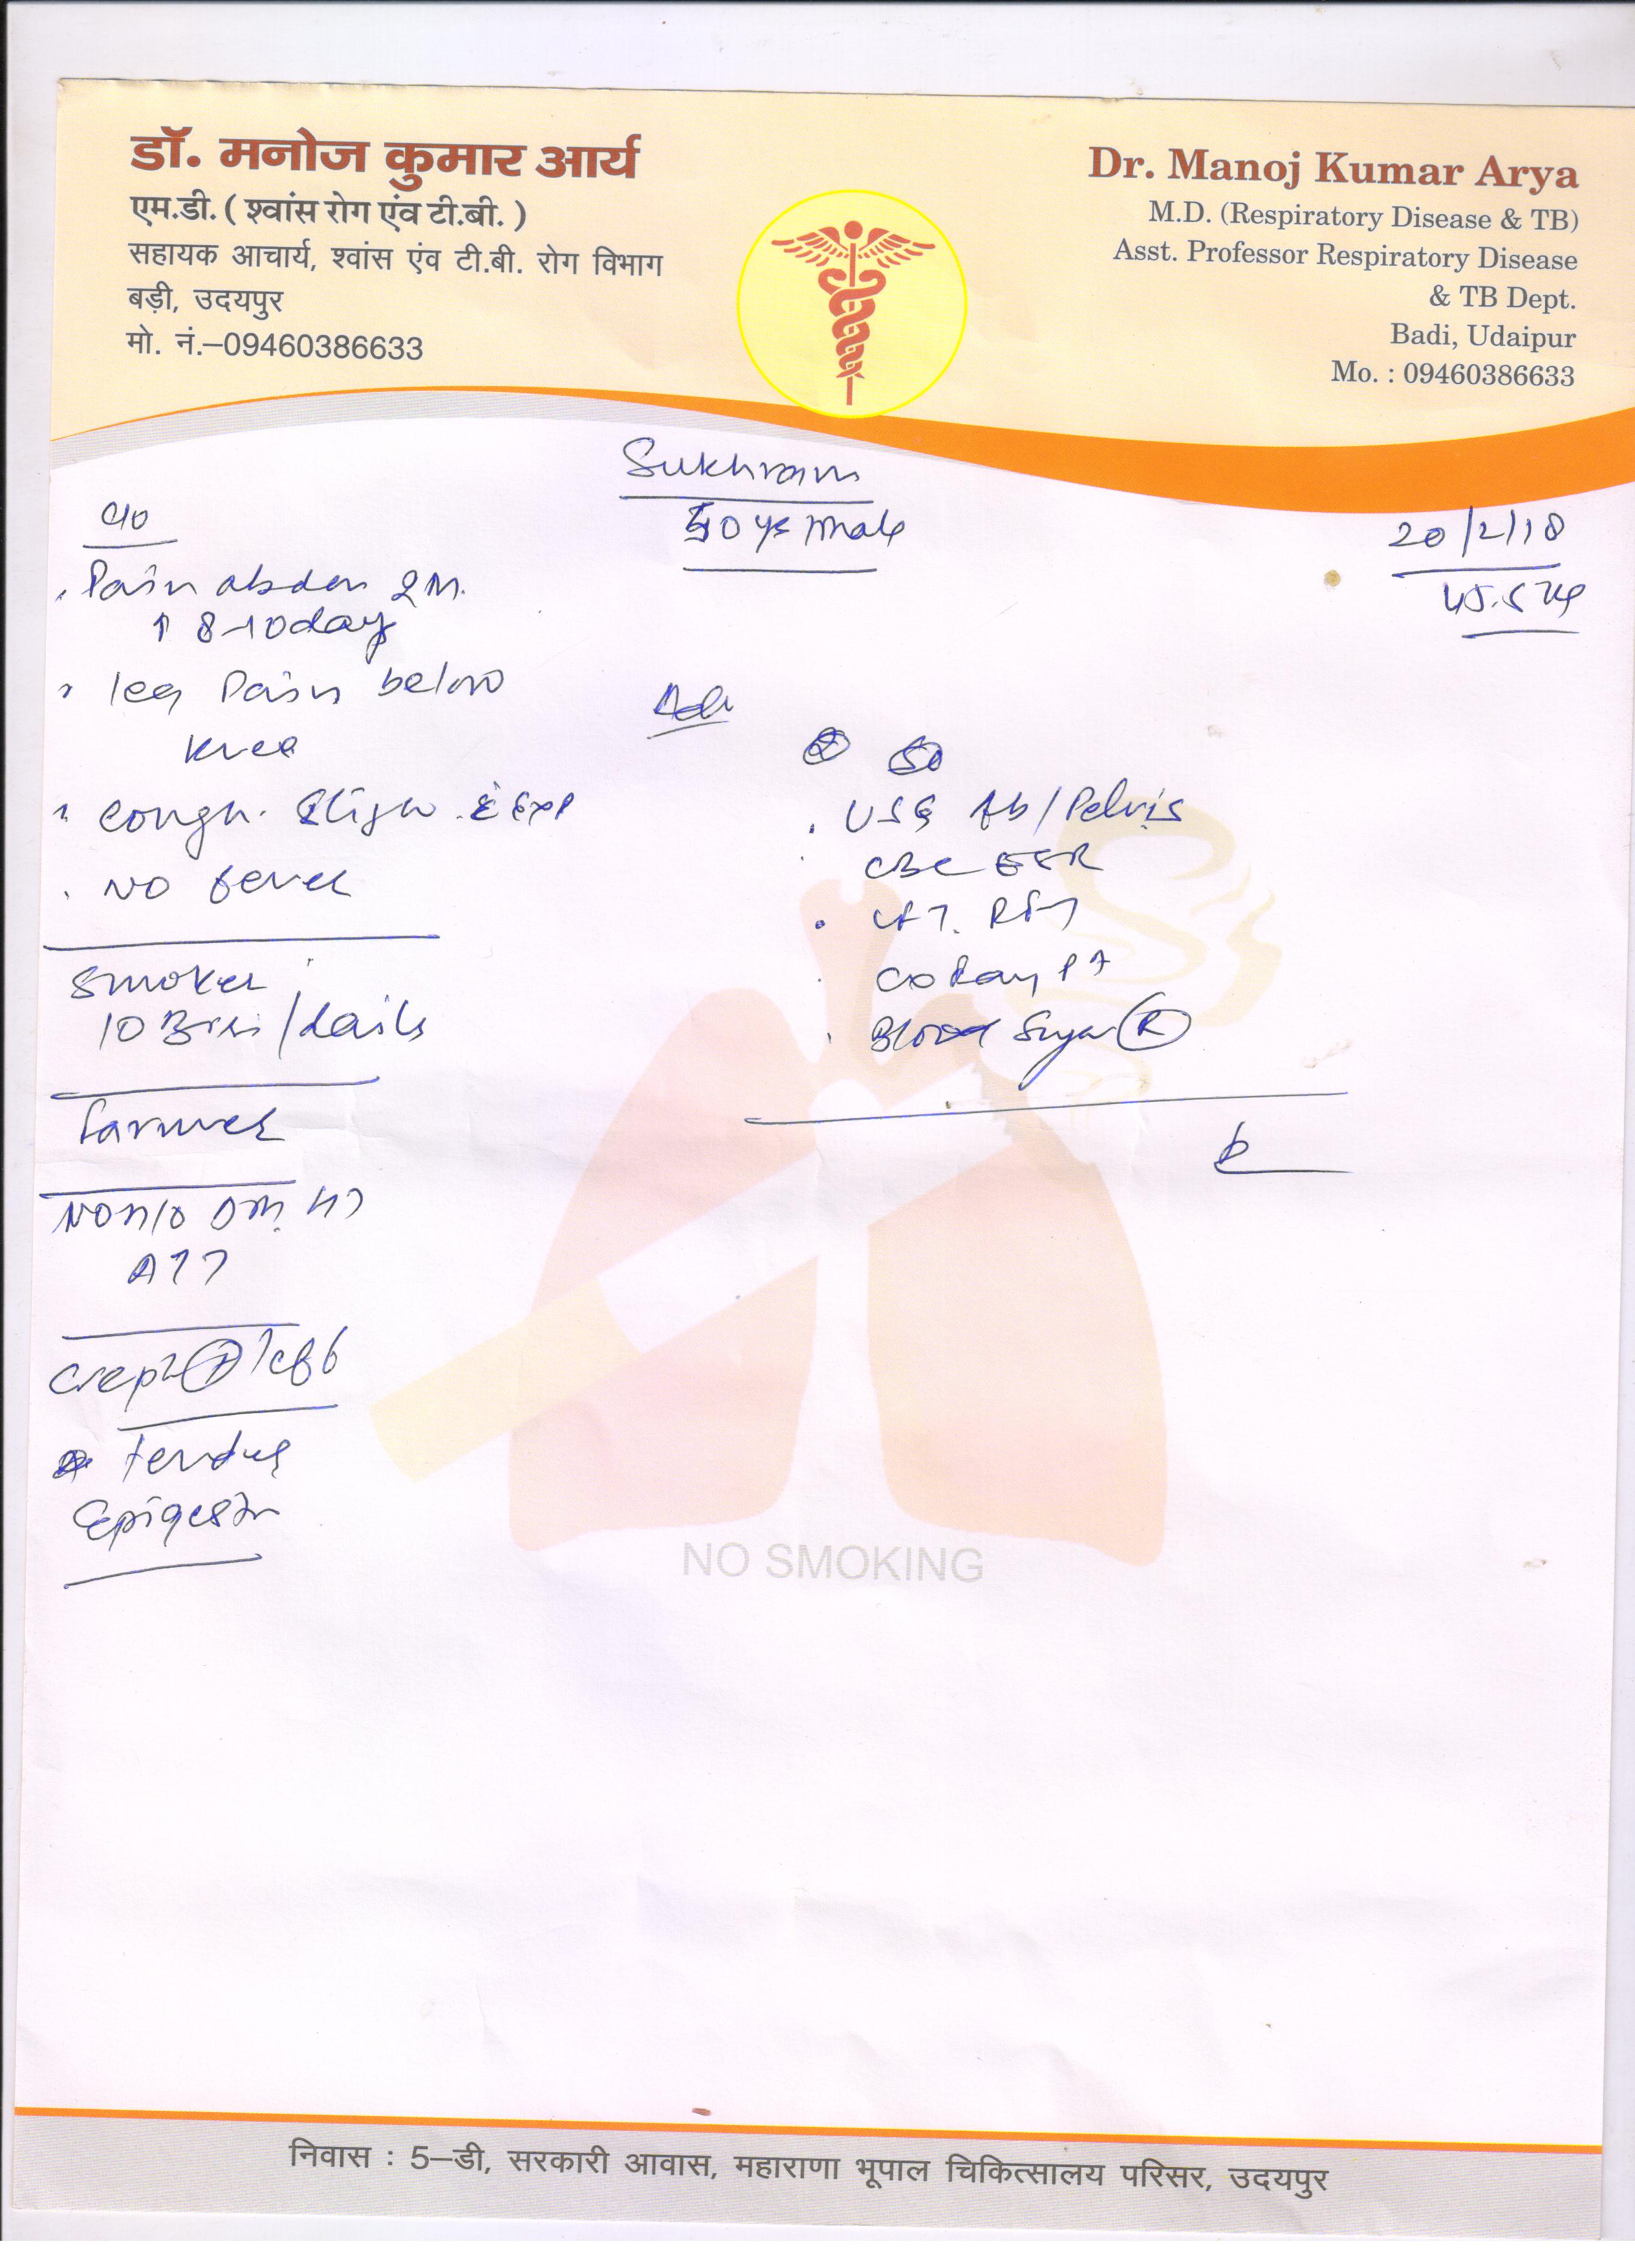 डॉ. मनोज कुमार आर्य
एम.डी. ( श्वांस रोग एंव टी.बी. )
सहायक आचार्य, श्वांस एंव टी.बी. रोग विभाग
बड़ी, उदयपुर
मो. नं.–09460386633
Dr. Manoj Kumar Arya
M.D. (Respiratory Disease & TB)
Asst. Professor Respiratory Disease
& TB Dept.
Badi, Udaipur
Mo. : 09460386633
Sukhram
50 ys male
20/2/18
45.5 kg
c/o
Pain abdon 2 M.
↑ 8-10 day
leg Pain below
knee
cough. Exp
No fever
Smoker
10 Bidi / daily
farmer
ATT
Tender
Adv
USG Ab/Pelvis
CBC ESR
LFT. RFT
CxRay PA
Blood Sugar (R)
NO SMOKING
निवास : 5–डी, सरकारी आवास, महाराणा भूपाल चिकित्सालय परिसर, उदयपुर